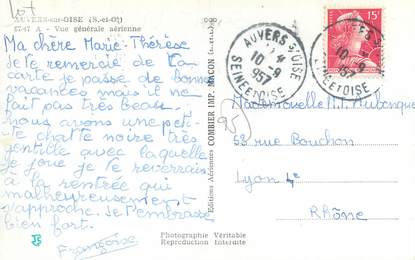 Lot
AUVERS-sur-OISE (S.-et-O.)
57-47 A - Vue générale aérienne
Ma chère Marie-Thérèse
Je te remercie de ta
carte je passe de bonne
vacances mais il ne
fait pas très beau.
Nous avons une pet-
-te chatte noire très
gentille avec laquelle
je joue je te reverrais
à la rentrée qui
malheureusement
s'approche. Je t'embrasse
bien fort.
Françoise
Editions Aériennes COMBIER IMP. MACON
Photographie Véritable
Reproduction Interdite
AUVERS S/OISE
10-9
1957
SEINE ET OISE
10-9
1957
SEINE ET OISE
15F
95
Mademoiselle M.T.
53 rue Bouchon
Lyon 4e
Rhône